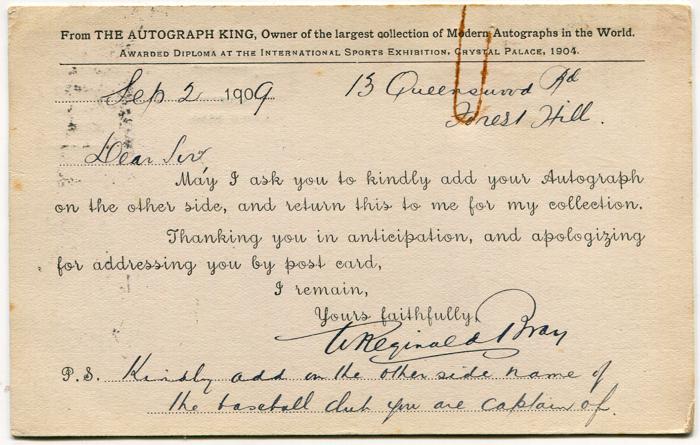 From THE AUTOGRAPH KING, Owner of the largest collection of Modern Autographs in the World.
AWARDED DIPLOMA AT THE INTERNATIONAL SPORTS EXHIBITION, CRYSTAL PALACE, 1904.
Sep 2 1909 13 Queenswood Rd
Forest Hill.
Dear Sir
May I ask you to kindly add your Autograph
on the other side, and return this to me for my collection.
Thanking you in anticipation, and apologizing
for addressing you by post card,
I remain,
Yours faithfully,
W Reginald Bray
P.S. Kindly add on the other side name of
the baseball club you are captain of.